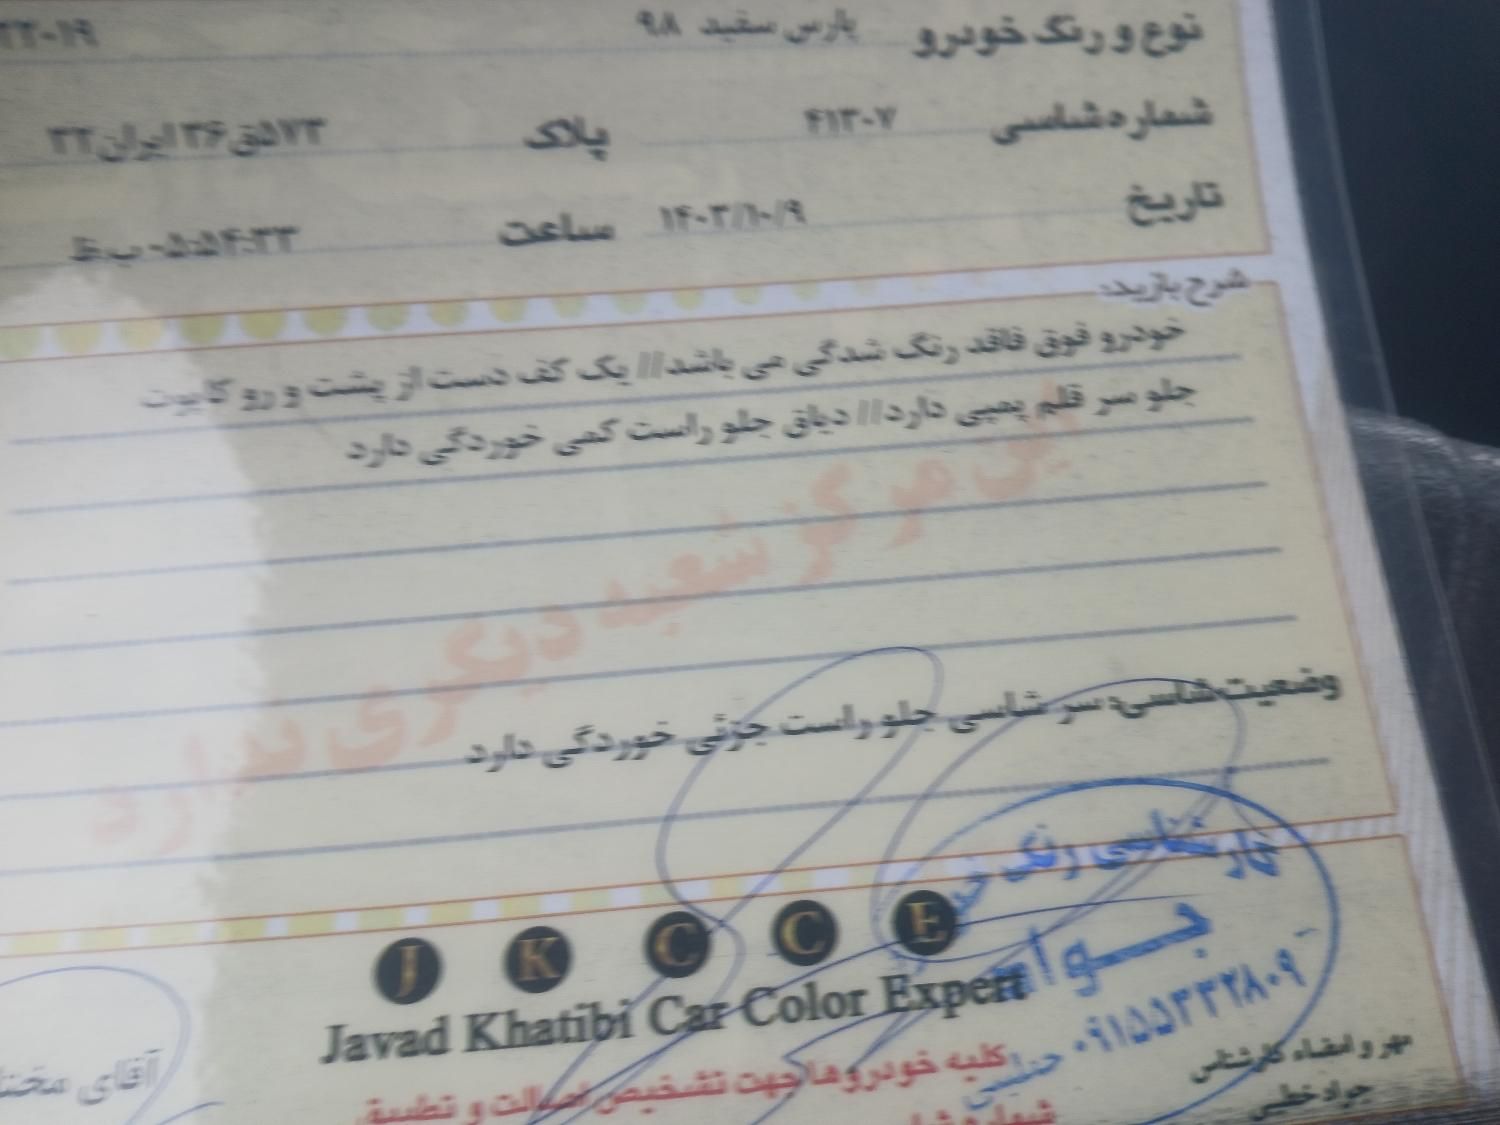 نوع و رنگ خودرو پارس سفید ۹۸
شماره شاسی ۴۱۳۰۷ پلاک ۵۷۳ق۳۶ ایران۳۲
تاریخ ۱۴۰۳/۱۰/۹ ساعت ۰۵:۵۴:۳۳ ب.ظ
شرح بازدید:
خودرو فوق فاقد رنگ شدگی می باشد// یک کف دست از پشت و رو کاپوت
جلو سر قلم پمپی دارد// دیاق جلو راست کمی خوردگی دارد
این مرکز شعبه دیگری ندارد
وضعیت شاسی: سر شاسی جلو راست جزئی خوردگی دارد
کارشناسی رنگ
J K C C E
جواد
Javad Khatibi Car Color Expert
۰۹۱۵۵۳۳۲۸۰۹
مهر و امضاء کارشناس
کلیه خودروها جهت تشخیص اصالت و تطبیق
جواد خطیبی
آقای